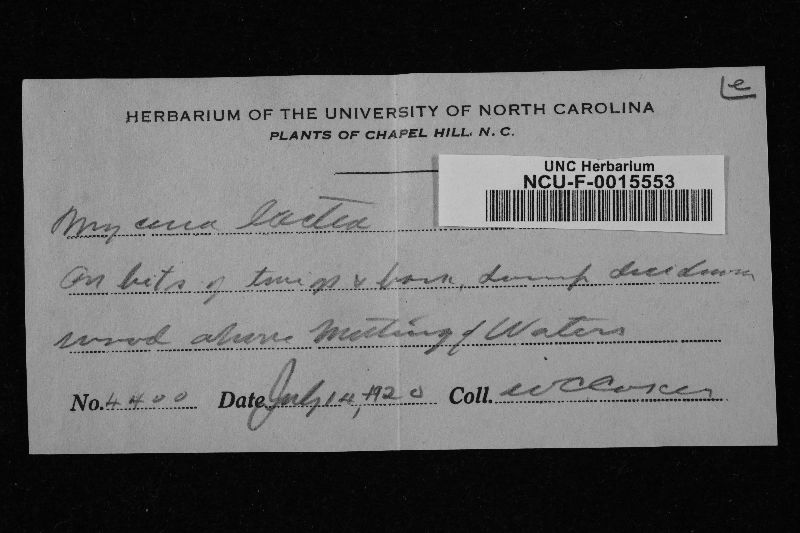 e
HERBARIUM OF THE UNIVERSITY OF NORTH CAROLINA
PLANTS OF CHAPEL HILL, N. C.
UNC Herbarium
NCU-F-0015553
Mycena lactea
On bits of twigs & bark, damp deciduous
wood above Meeting of Waters
No. 4400 Date July 14, 1920 Coll. W C Coker